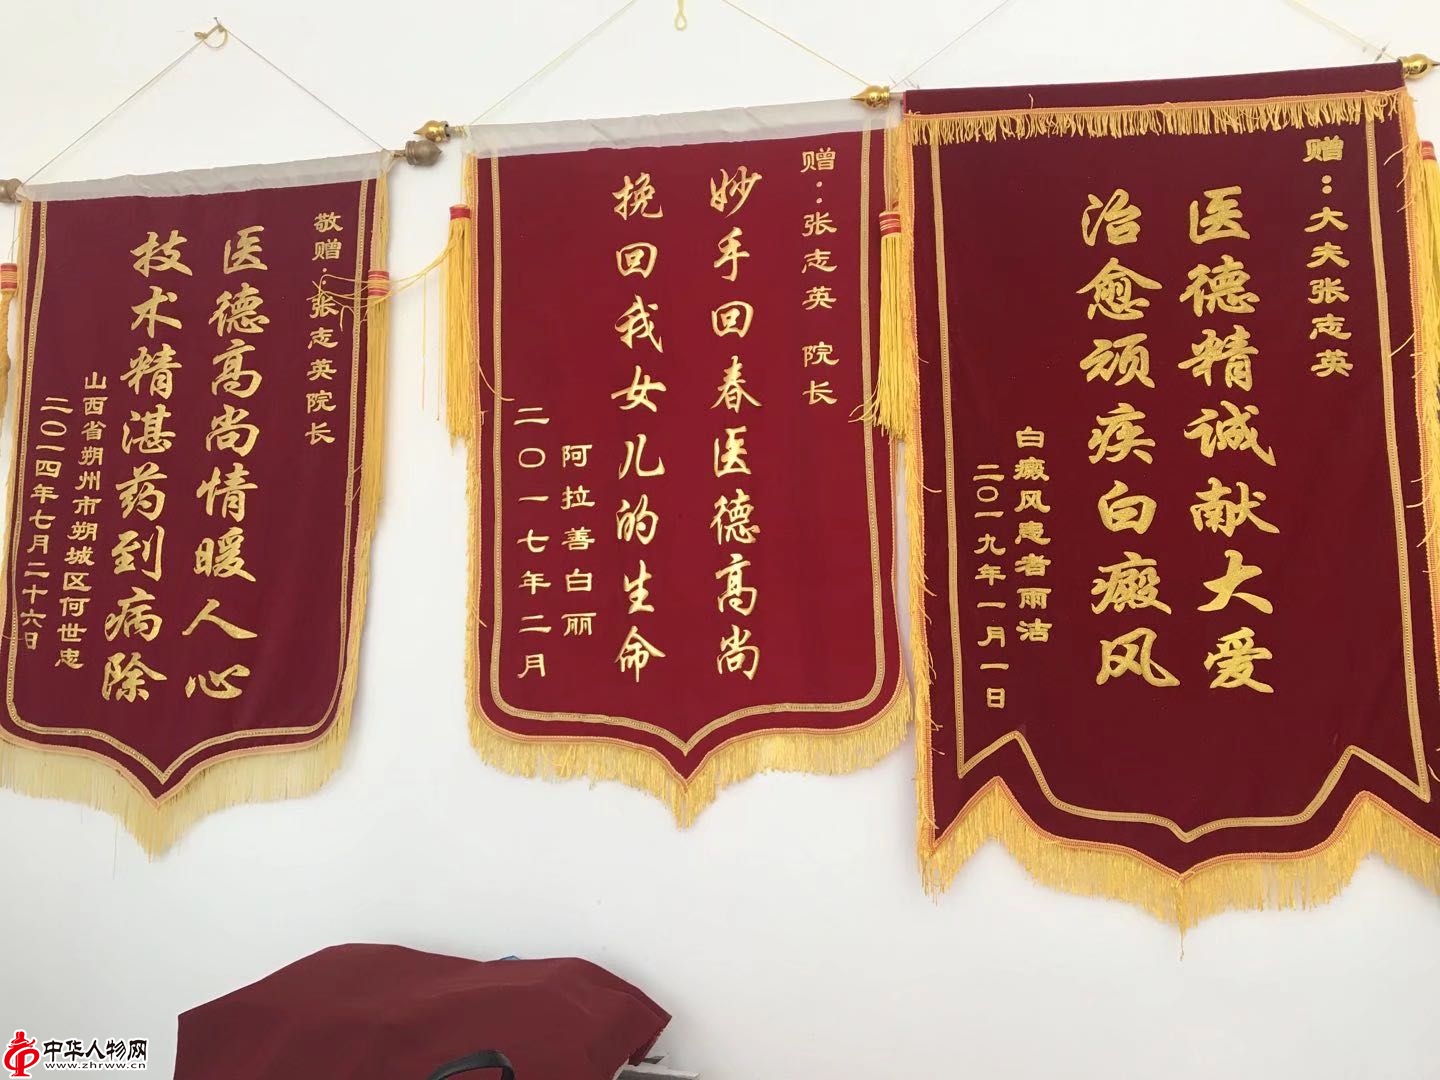 敬赠：张志英院长
医德高尚情暖人心
技术精湛药到病除
山西省朔州市朔城区何世忠
二〇一四年七月二十六日
赠：张志英 院长
妙手回春医德高尚
挽回我女儿的生命
阿拉善白丽
二〇一七年二月
赠：大夫张志英
医德精诚献大爱
治愈顽疾白癜风
白癜风患者雨洁
二〇一九年一月一日
中华人物网
www.zhrww.cn